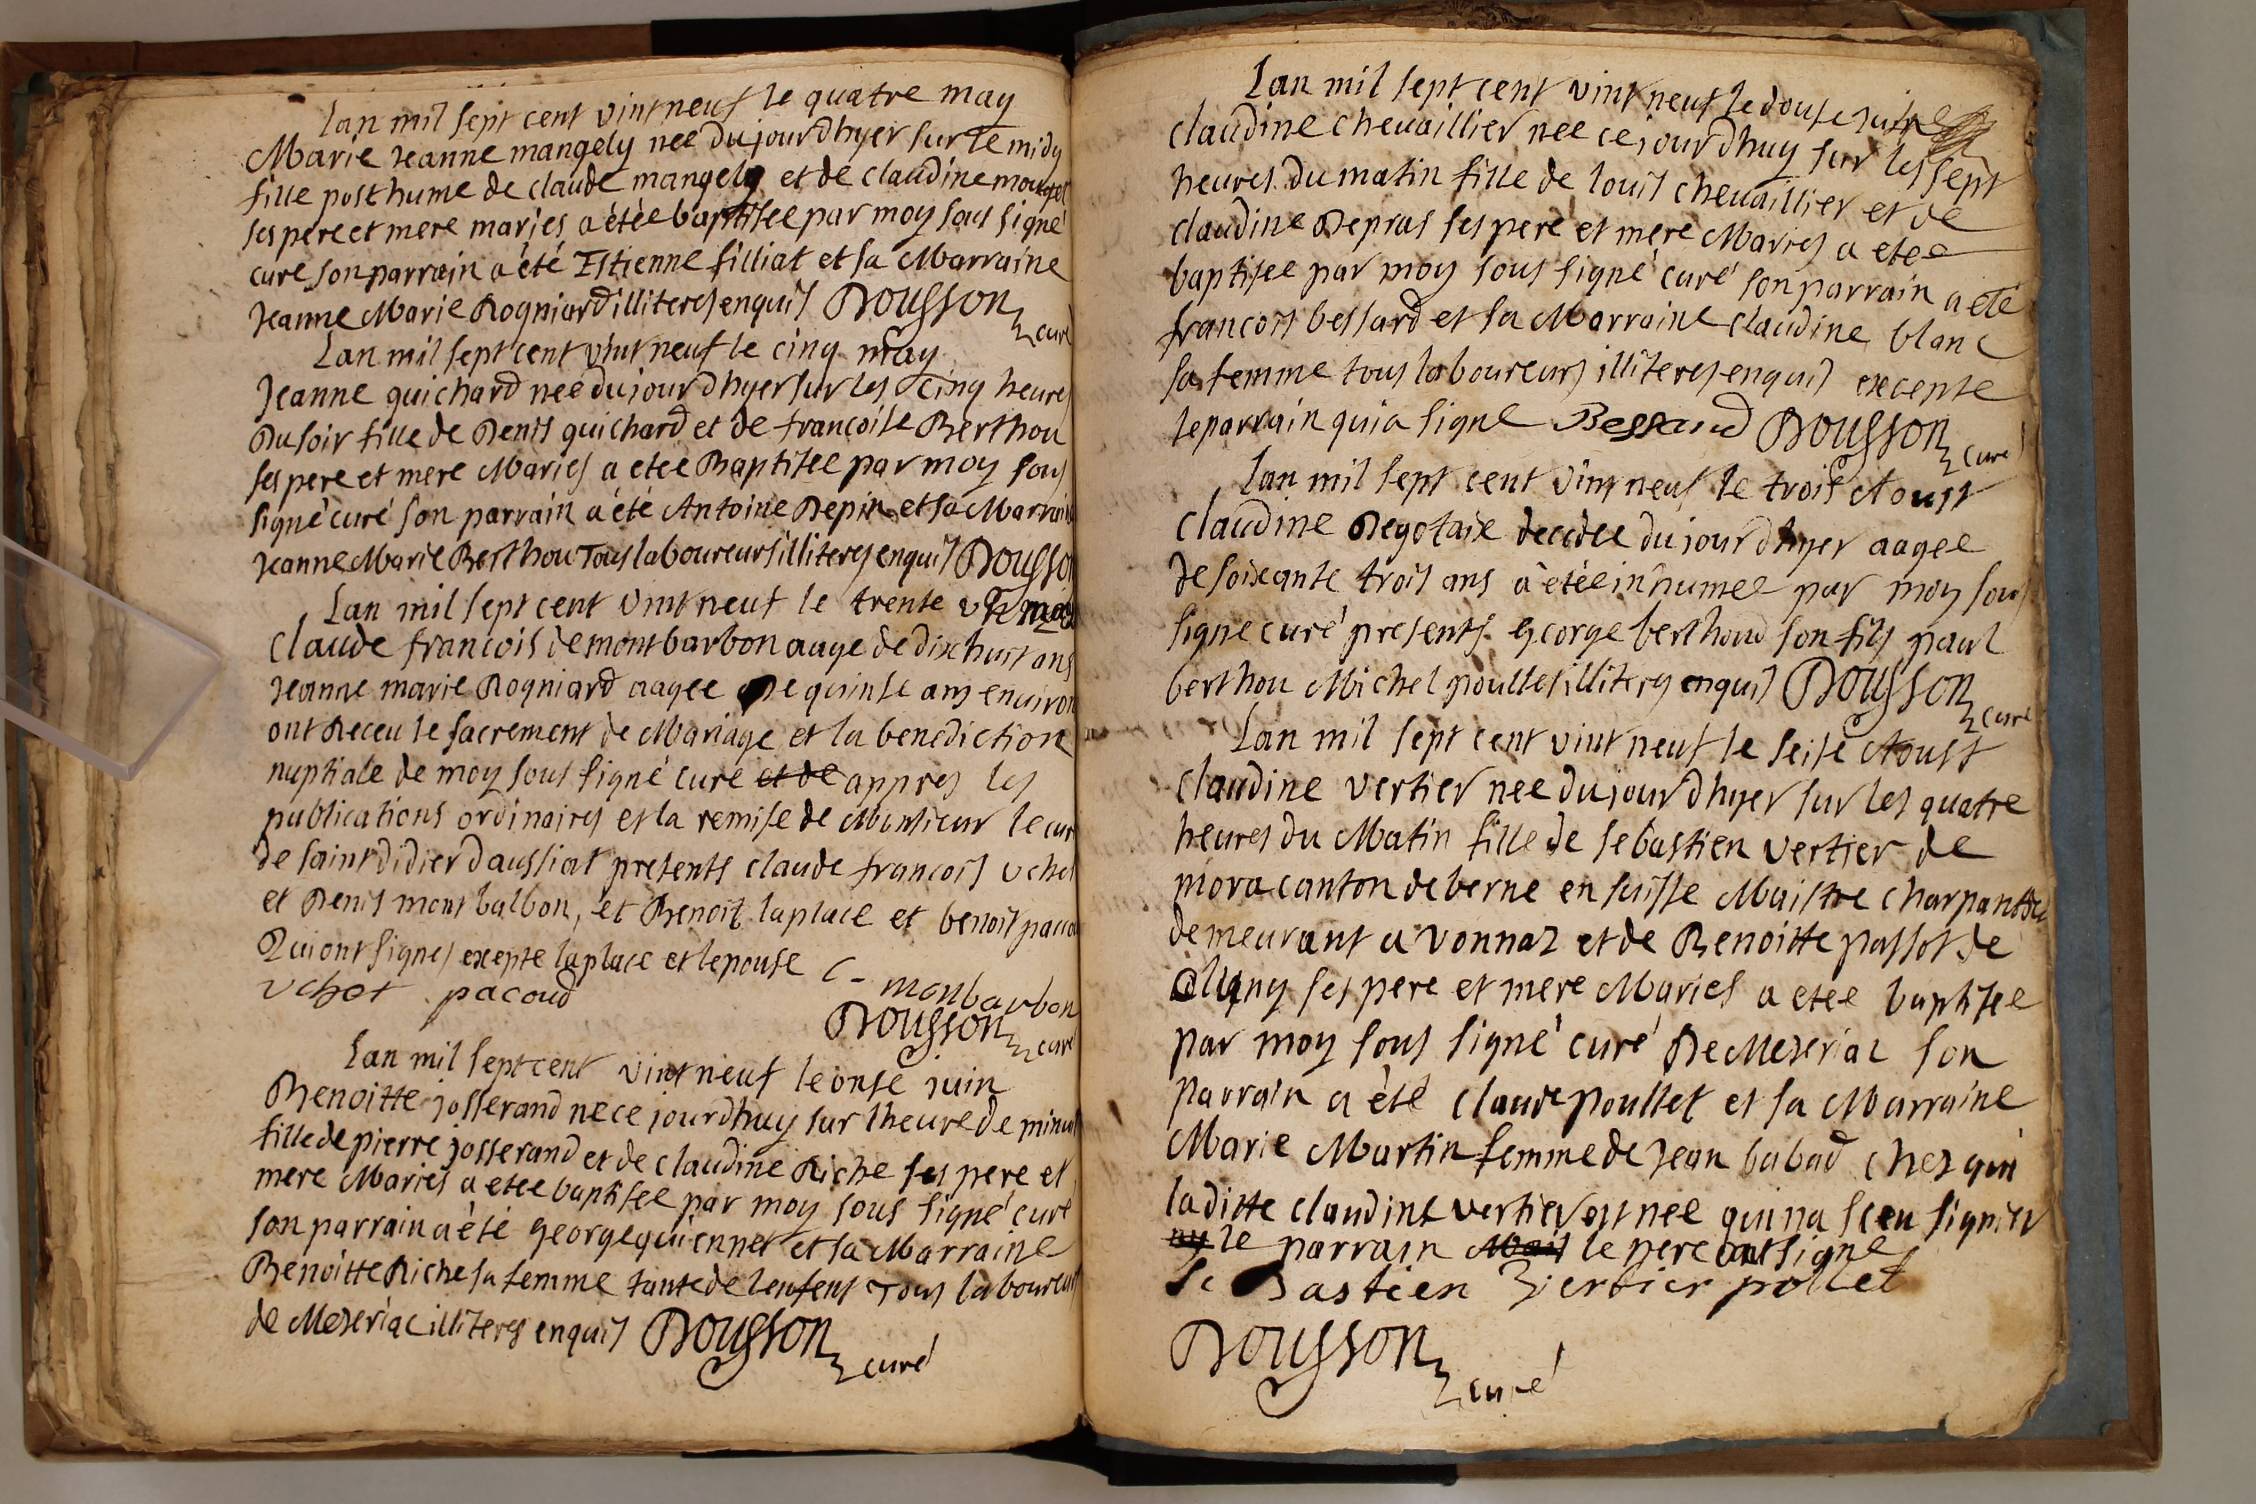 Lan mil sept cent vint neuf le quatre may
Marie Jeanne mangely neé du jourdhyer sur le midy
fille posthume de claude mangely et de claudine
ses pere et mere mariés a étée baptisee par moy sous signé
curé son parrain a été Estienne filliat et sa Marraine
Jeanne Marie Rogniard illiteres enquis Dousson curé
Lan mil sept cent vint neuf le cinq may
Jeanne guichard neé du jourdhyer sur les cinq heures
Du soir fille de Denis guichard et de francoise Berthou
ses pere et mere Maries a etee Baptisee par moy sous
signé curé son parrain a été Antoine Depin et sa Marraine
Jeanne Marie Berthou Tous laboureurs illiteres enquis Dousson
Lan mil sept cent vint neuf le trente
Claude francois de montbarbon aage de dixhuit ans
Jeanne marie Rogniard aagee de quinse ans environ
ont Receu le sacrement de Mariage et la benediction
nuptiale de moy sous signé curé et de appres les
publications ordinaires et la remise de Monsieur le curé
de saint didier daussiat presents claude francois uchet
et Denis montbalbon, et Benoit laplace et benoit pacoud
Qui ont signes excepte laplace et lepouse C - monbarbon
uchet pacoud
Dousson curé
Lan mil sept cent vint neuf le onse juin
Benoitte josserand neé ce jourdhuy sur lheure de minuit
fille de pierre josserand et de claudine Riche ses pere et
mere Mariés a etee baptisee par moy sous signé curé
son parrain a été george guiennet et sa Marraine
Benoitte Riche sa femme tante de lenfent Tous laboureurs
de Mezeriac illiteres enquis Dousson curé
Lan mil sept cent vint neuf le douse
claudine chevaillier neé ce jourdhuy sur les sept
heures du matin fille de louis chevaillier et de
claudine Depras ses pere et mere Maries a etee
baptisee par moy sous signé curé son parrain a été
francois bessard et sa Marraine claudine blanc
sa femme tous laboureurs illiteres enquis excepte
le parrain qui a signe Bessard Dousson curé
Lan mil sept cent vint neuf le trois Aoust
claudine Degotaix decedee du jourdhyer aagee
de soixante trois ans a étée inhumee par moy sous
signe curé presents george berthoud son fils paul
berthou Michel poullet illiteres enquis Dousson curé
Lan mil sept cent vint neuf le seise Aoust
claudine vertier nee du jourdhyer sur les quatre
heures du Matin fille de sebastien vertier de
mora canton de berne en suisse Maistre charpantier
demeurant a vonnaz et de Benoitte passot de
cligny ses pere et mere Maries a etee baptisee
par moy sous signé curé De Mezeriaz son
parrain a été claude poullet et sa Marraine
Marie Martin femme de Jean babad chez qui
laditte claudine vertier est nee qui na sceu signier
ny le parrain Mais le pere ont signe
Se Bastien Vertier pollet
Dousson curé